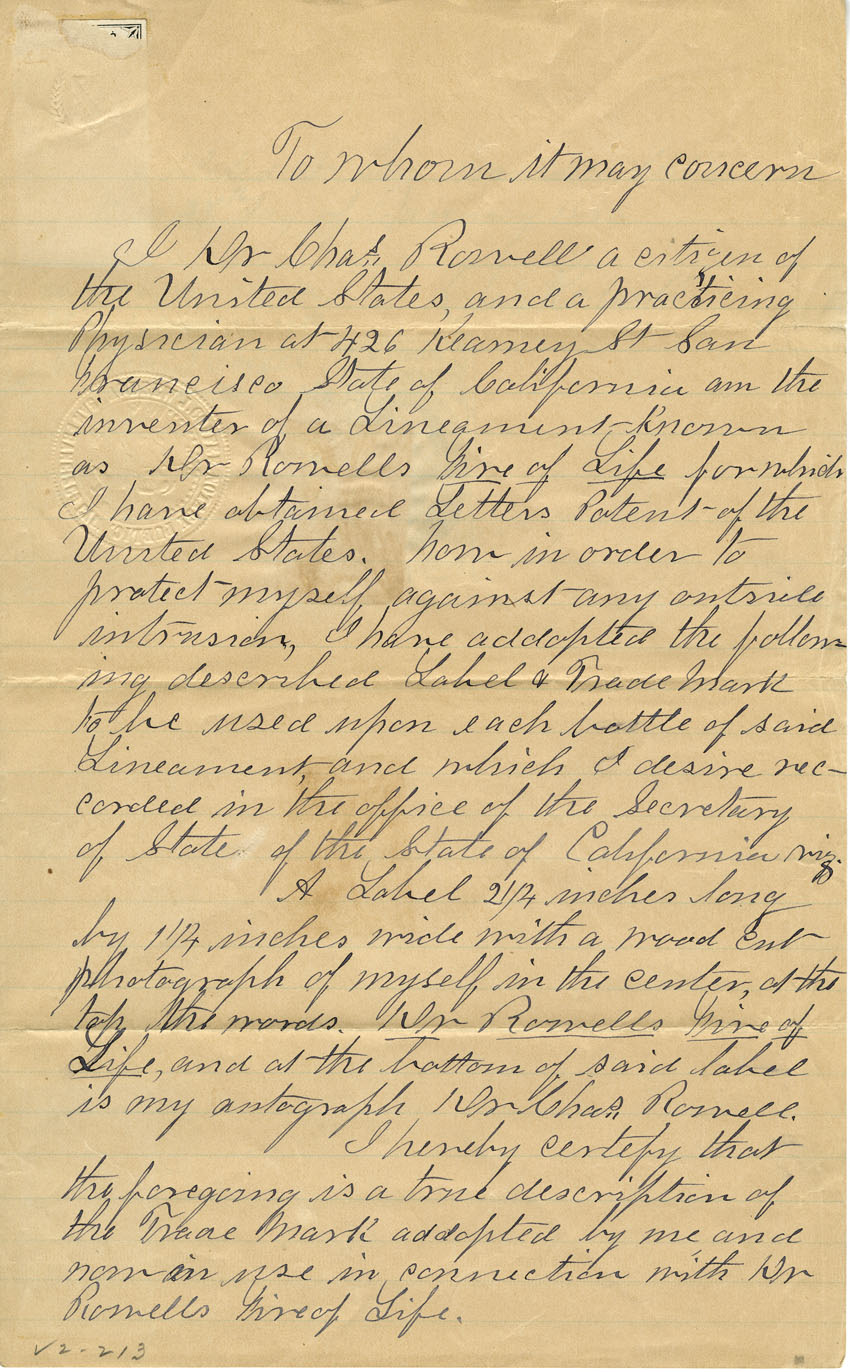 To whom it may concern
I Dr Chas. Rowell a citizen of
the United States, and a practicing
Physician at 426 Kearney St San
Francisco State of California am the
inventer of a Lineament Known
as Dr Rowells Fire of Life for which
I have obtained Letters Patent of the
United States. Now in order to
protect myself against any outside
intrusion, I have addopted the follow-
ing described Label & Trade Mark
to be used upon each bottle of said
Lineament, and which I desire rec-
corded in the office of the Secretary
of State of the State of California viz.
A Label 2 1/4 inches long
by 1 1/4 inches wide with a wood cut
photograph of myself in the center, at the
top the words. Dr Rowells Fire of
Life, and at the bottom of said label
is my autograph Dr Chas. Rowell.
I hereby certefy that
the foregoing is a true description of
the Trade Mark addopted by me and
now in use in connection with Dr
Rowells Fire of Life.
V2-213